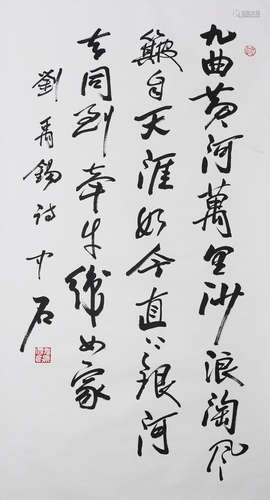 九曲黄河萬里沙浪淘風
簸自天涯如今直上銀河
去同到牽牛織女家
劉禹錫詩中石